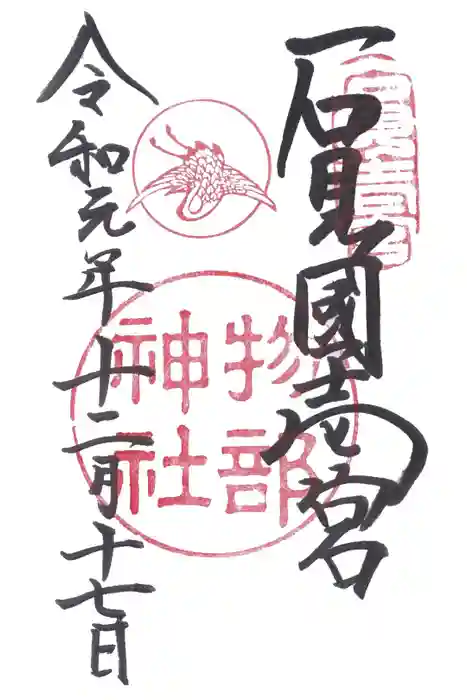 石見國壱宮
物部
神社
令和元年十二月十七日